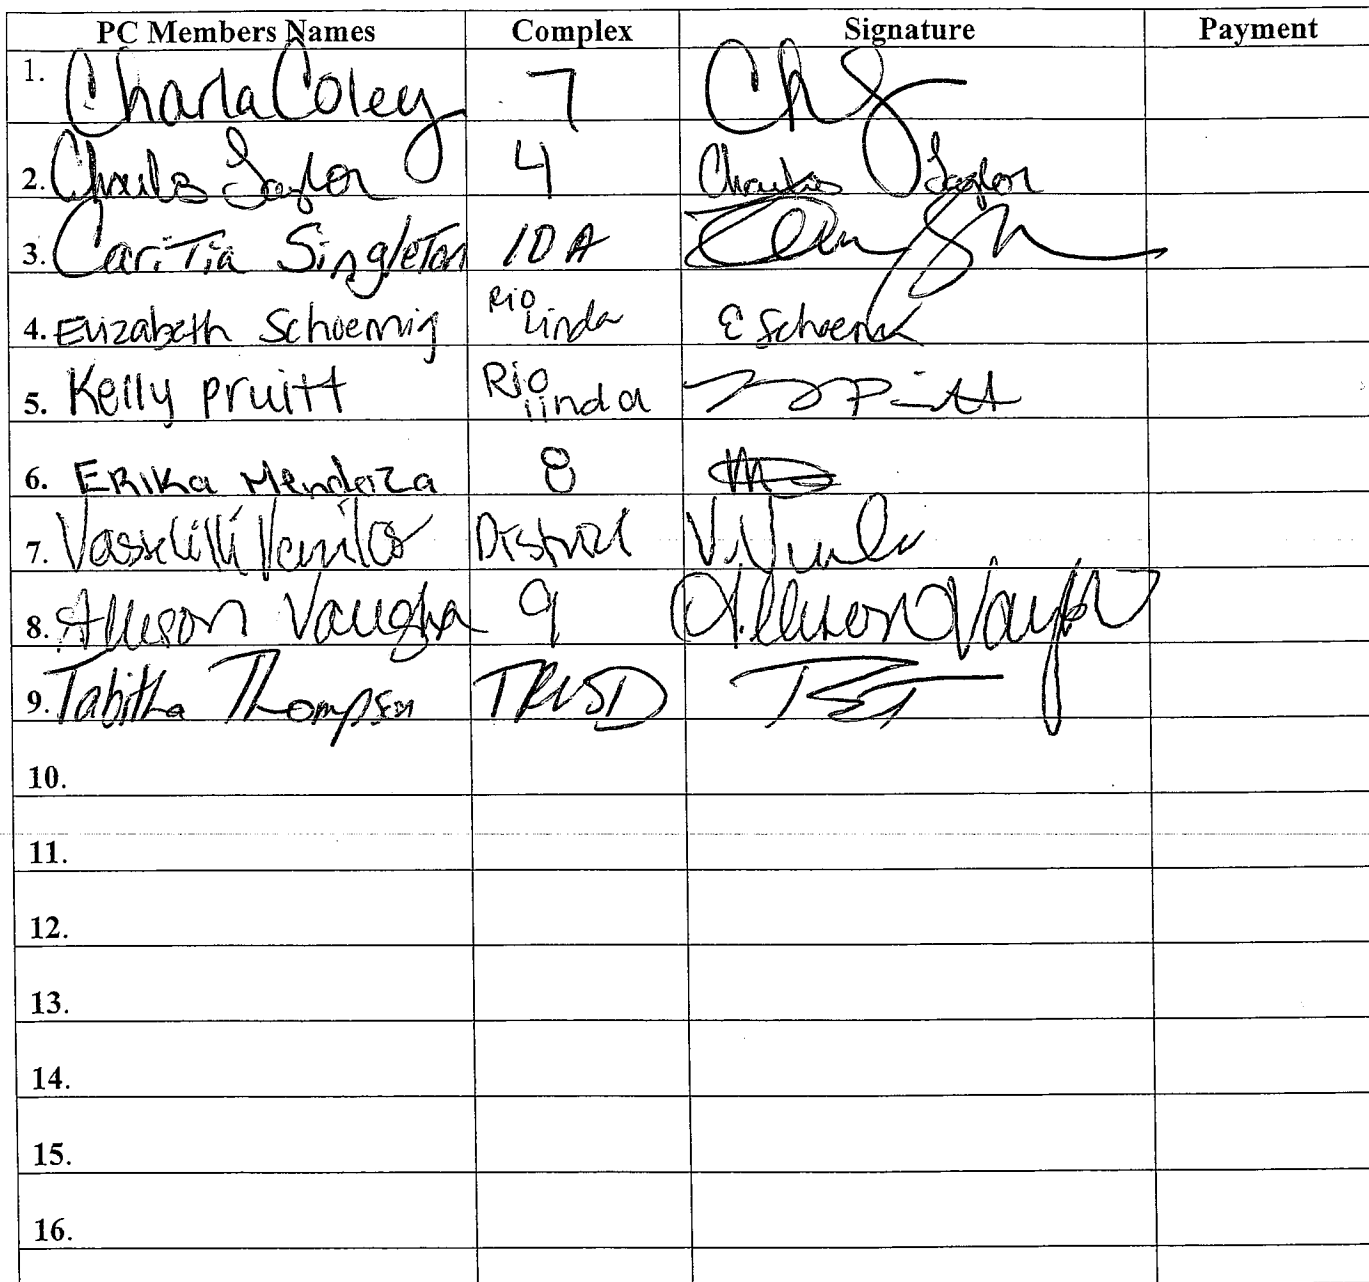 PC Members Names Complex Signature Payment
1. Charla Coley 7
2. Charles Taylor 4 Charles Taylor
3. CariTia Singleton 10 A
4. Elizabeth Schoennig Rio Linda E Schoen
5. Kelly Pruitt Rio linda
6. Erika Mendoza 8
7. District
8. Allison Vaughn 9 Allison Vaughn
9. Tabitha Thompson TRUSD
10.
11.
12.
13.
14.
15.
16.